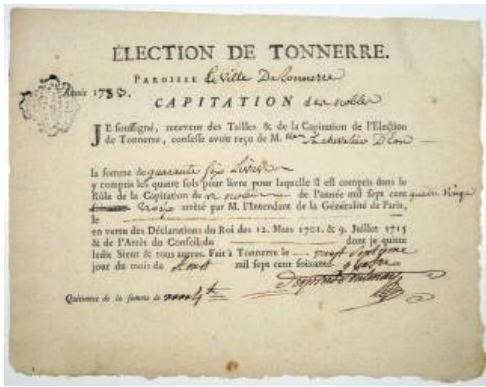 ÉLECTION DE TONNERRE.
PAROISSE de Ville De Tonnerre
Année 1783.
CAPITATION des nobles
JE soussigné, receveur des Tailles & de la Capitation de l'Election
de Tonnerre, confesse avoir reçu de M.
la somme de quarante six Livres
y compris les quatre sols pour livre pour laquelle il est compris dans le
Rôle de la Capitation de de l'année mil sept cent quatre vingt
trois arrêté par M. l'Intendant de la Généralité de Paris,
le
en vertu des Déclarations du Roi des 12. Mars 1701. & 9. Juillet 1715
& de l'Arrêt du Conseil du dont je quitte
ledit Sieur & tous autres. Fait à Tonnerre le vingt
jour du mois de mil sept cent soixante
Quittance de la somme de